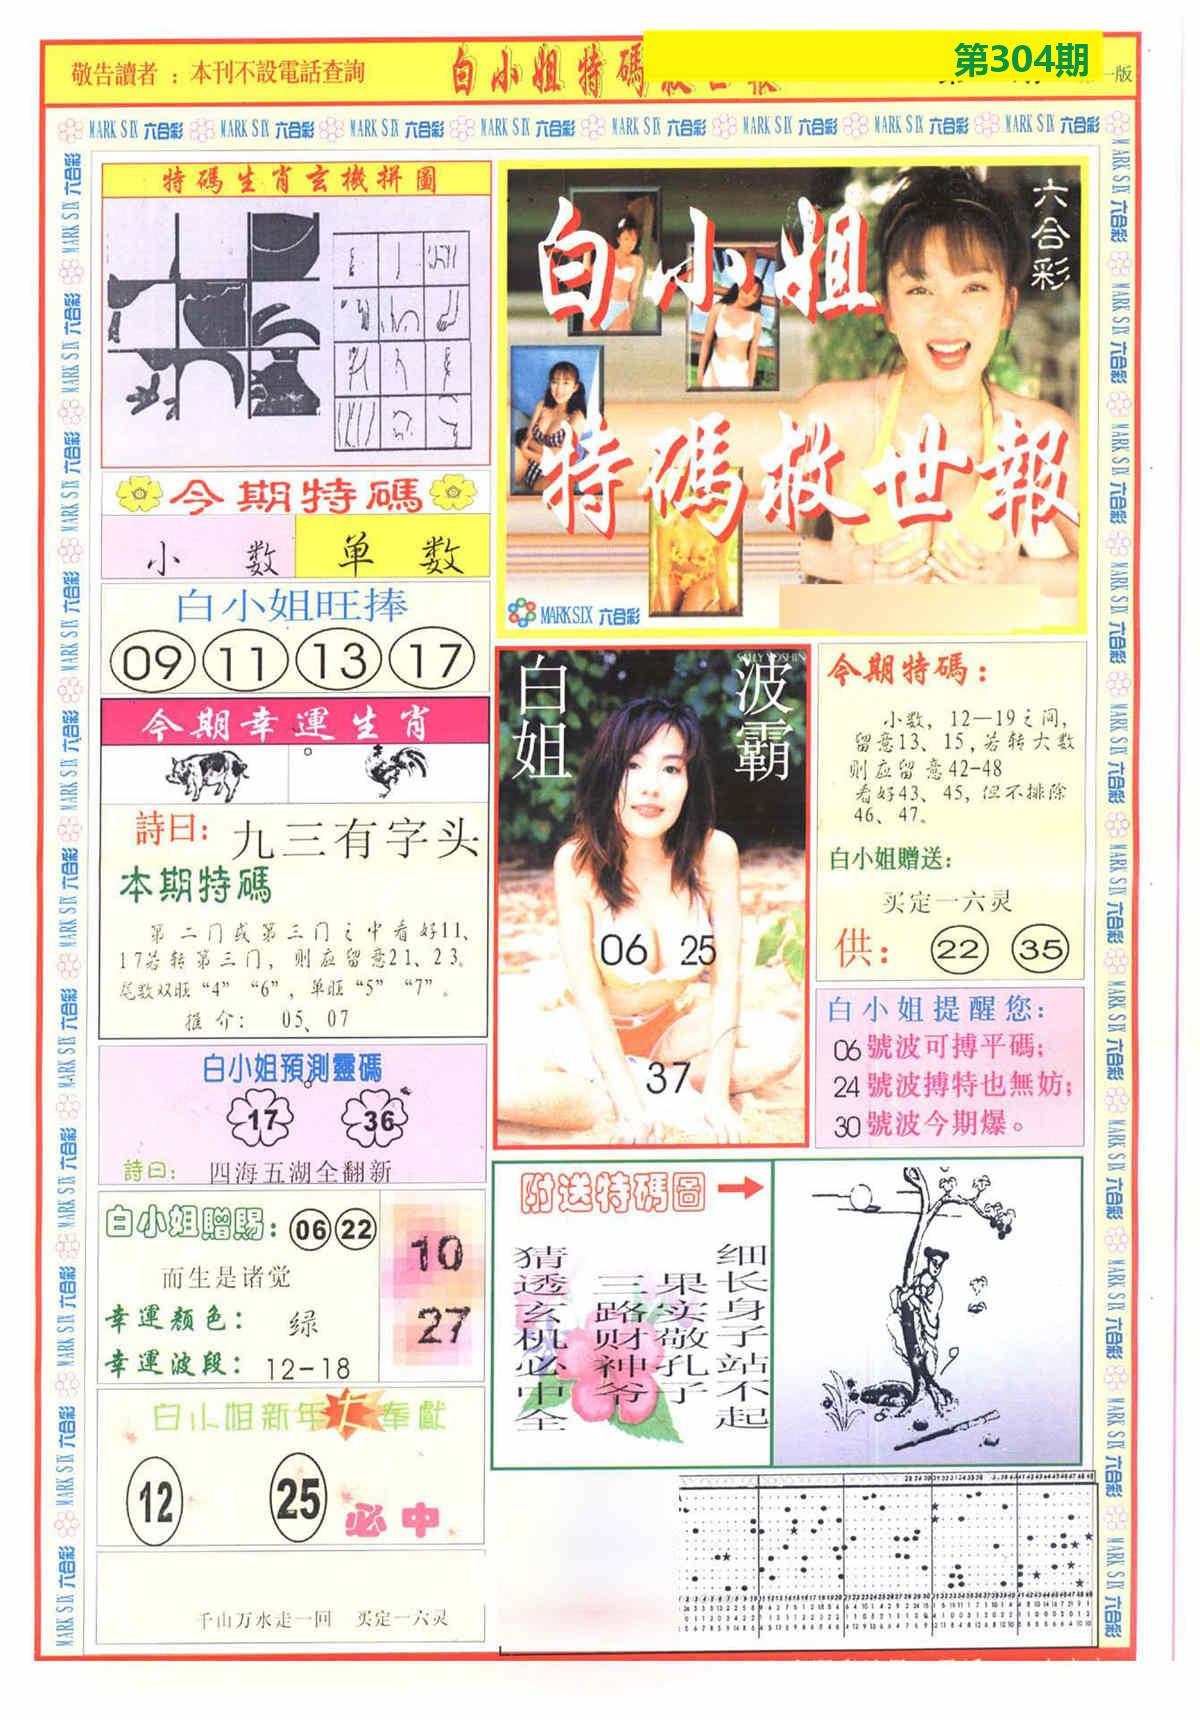 敬告讀者：本刊不設電話查詢
白小姐特碼救世報
第304期
一版
MARK SIX 六合彩 MARK SIX 六合彩 MARK SIX 六合彩 MARK SIX 六合彩 MARK SIX 六合彩 MARK SIX 六合彩 MARK SIX 六合彩 MARK SIX 六合彩
特碼生肖玄機拼圖
今期特碼
小 数 单 数
白小姐旺捧
09 11 13 17
今期幸運生肖
詩曰：九三有字头
本期特碼
第二门或第三门之中看好11、
17若转第三门，则应留意21、23。
尾数双旺“4”“6”，单旺“5”“7”。
推介： 05、07
白小姐預測靈碼
17 36
詩曰： 四海五湖全翻新
白小姐贈賜：06 22
而生是诸觉
幸運顏色： 绿
幸運波段： 12-18
10
27
白小姐新年大奉獻
12 25 必中
千山万水走一回 买定一六灵
六合彩
白小姐
特碼救世報
MARK SIX 六合彩
白姐
波霸
06 25
37
今期特碼：
小数，12—19之间，
留意13、15，若转大数
则应留意42-48
看好43、45，但不排除
46、47。
白小姐贈送：
买定一六灵
供： 22 35
白小姐提醒您：
06號波可搏平碼；
24號波搏特也無妨；
30號波今期爆。
附送特碼圖
细长身子站不起
果实敬孔子
三路财神爷
猜透玄机必中全